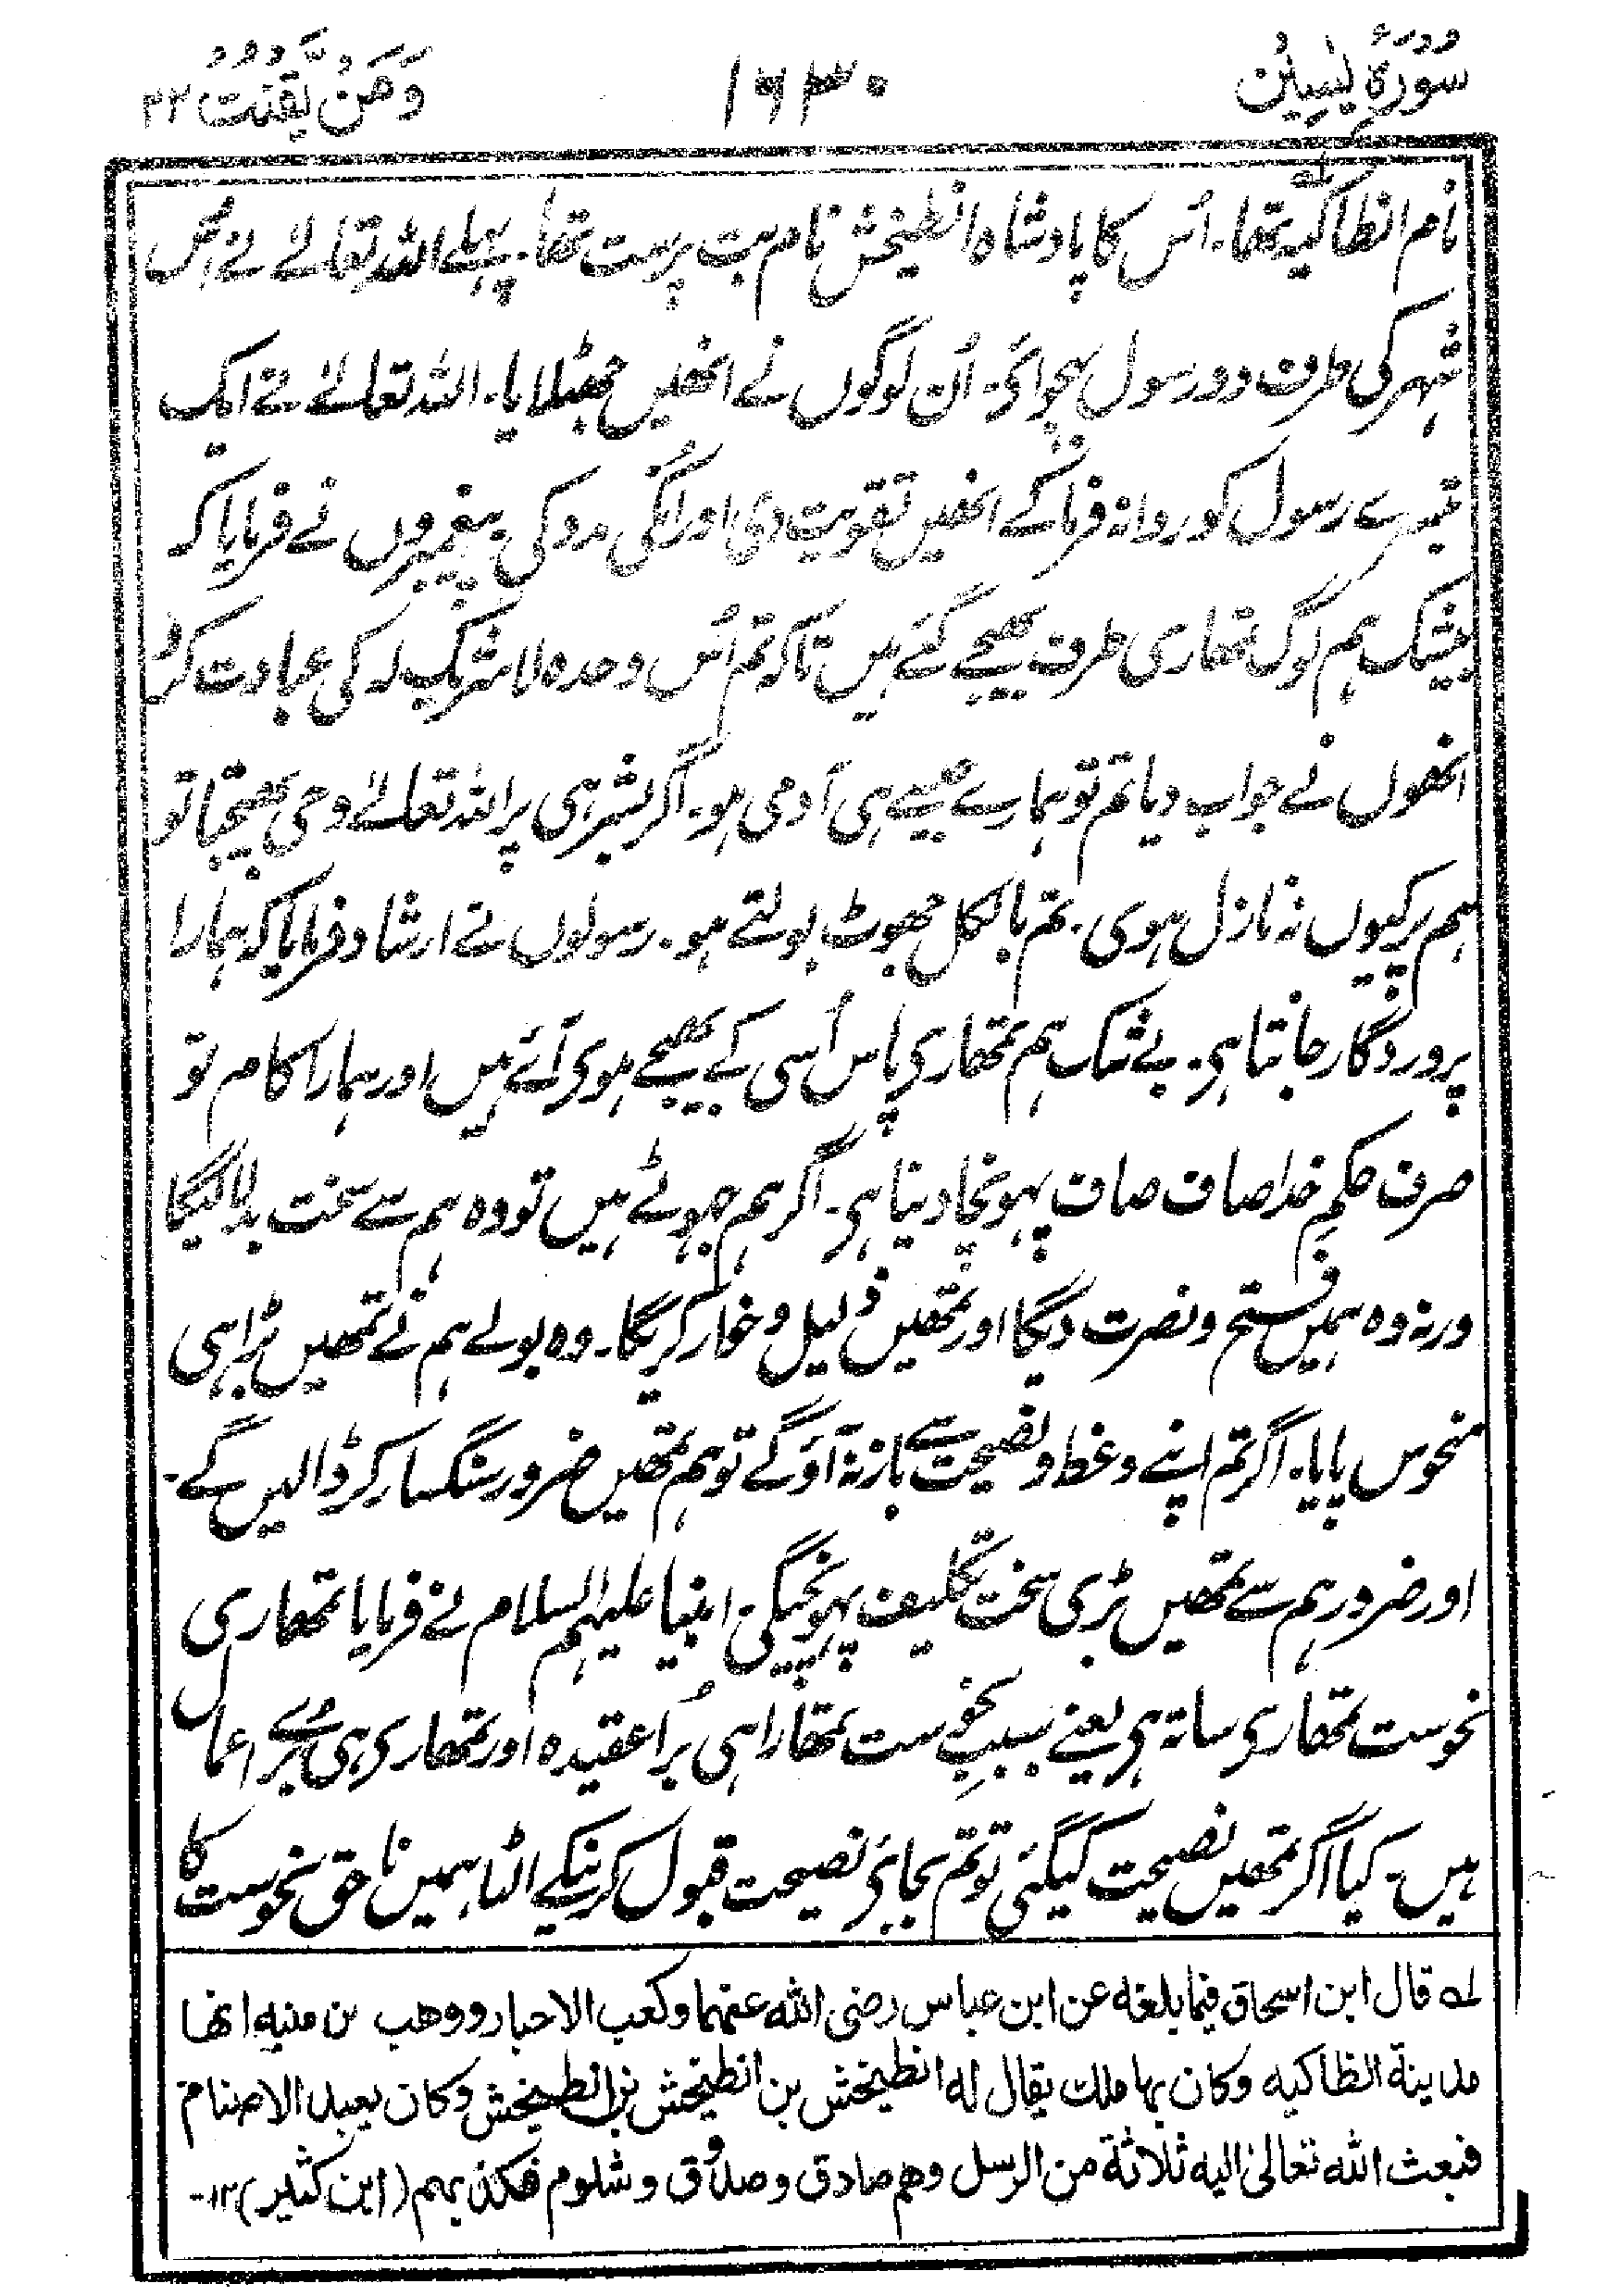 سُوْرَۃُ یٰسِیْن ۱۶۳۰ وَمَنْ یَّقْنُتْ ۲۲
نام انطاکیہ تھا۔ اُس کا پادشاہ انطیخش نام بت پرست تھا۔ پہلے اللہ تعالےٰ نے اُس
شہر کی طرف دو رسول بھجوائی۔ اُن لوگوں نے انھیں جھٹلایا۔ اللہ تعالےٰ نے ایک
تیسرے رسول کو روانہ فرما کے انھیں تقویت دی اور اُنکی مدد کی۔ پیغمبروں نے فرمایا کہ
بیشک ہم لوگ تمھاری طرف بھیجے گئے ہیں تاکہ تم اُس وحدہ لا شریک لہ کی عبادت کرو
انھوں نے جواب دیا تم تو ہمارے جیسے ہی آدمی ہو۔ اگر بشر ہی پر اللہ تعالےٰ وحی بھیجتا تو
ہم پر کیوں نہ نازل ہوی۔ تم بالکل جھوٹ بولتے ہو۔ رسولوں نے ارشاد فرمایا کہ ہمارا
پروردگار جانتا ہی۔ بے شک ہم تمھاری پاس اُسی کے بھیجے ہوی آئے ہیں اور ہمارا کام تو
صرف حکمِ خدا صاف صاف پہونچا دینا ہی۔ اگر ہم جھوٹے ہیں تو وہ ہم سے سخت بدلا لیگا
ورنہ وہ ہمیں فتح و نصرت دیگا اور تمھیں ذلیل و خوار کریگا۔ وہ بولے ہم نے تمھیں بڑا ہی
منحوس پایا۔ اگر تم اپنے وعظ و نصیحت سے باز نہ آؤ گے تو ہم تمھیں ضرور سنگسار کر ڈالیں گے۔
اور ضرور ہم سے تمھیں بڑی سخت تکلیف پہونچیگی۔ انبیا علیہم السلام نے فرمایا تمھاری
نحوست تمھاری ساتہ ہی یعنے سببِ نحوست تمھارا ہی بُرا عقیدہ اور تمھاری ہی بُرے اعمال
ہیں۔ کیا اگر تمھیں نصیحت کیگئی تو تم بجائی نصیحت قبول کرنیکے الٹا ہمیں ناحق نحوست کا
لہ قال ابن اسحاق فیما بلغہ عن ابن عباس رضی اللہ عنھما وکعب الاحبار ووھب بن منبہ انھا
مدینۃ انطاکیہ وکان بھا ملك یقال لہ انطیخش بن انطیخش بن انطیخش وکان یعبد الاصنام
فبعث اللہ تعالیٰ الیہ ثلاثۃ من الرسل وھم صادق وصدوق وشلوم فکذبھم (ابن کثیر) ۱۲-